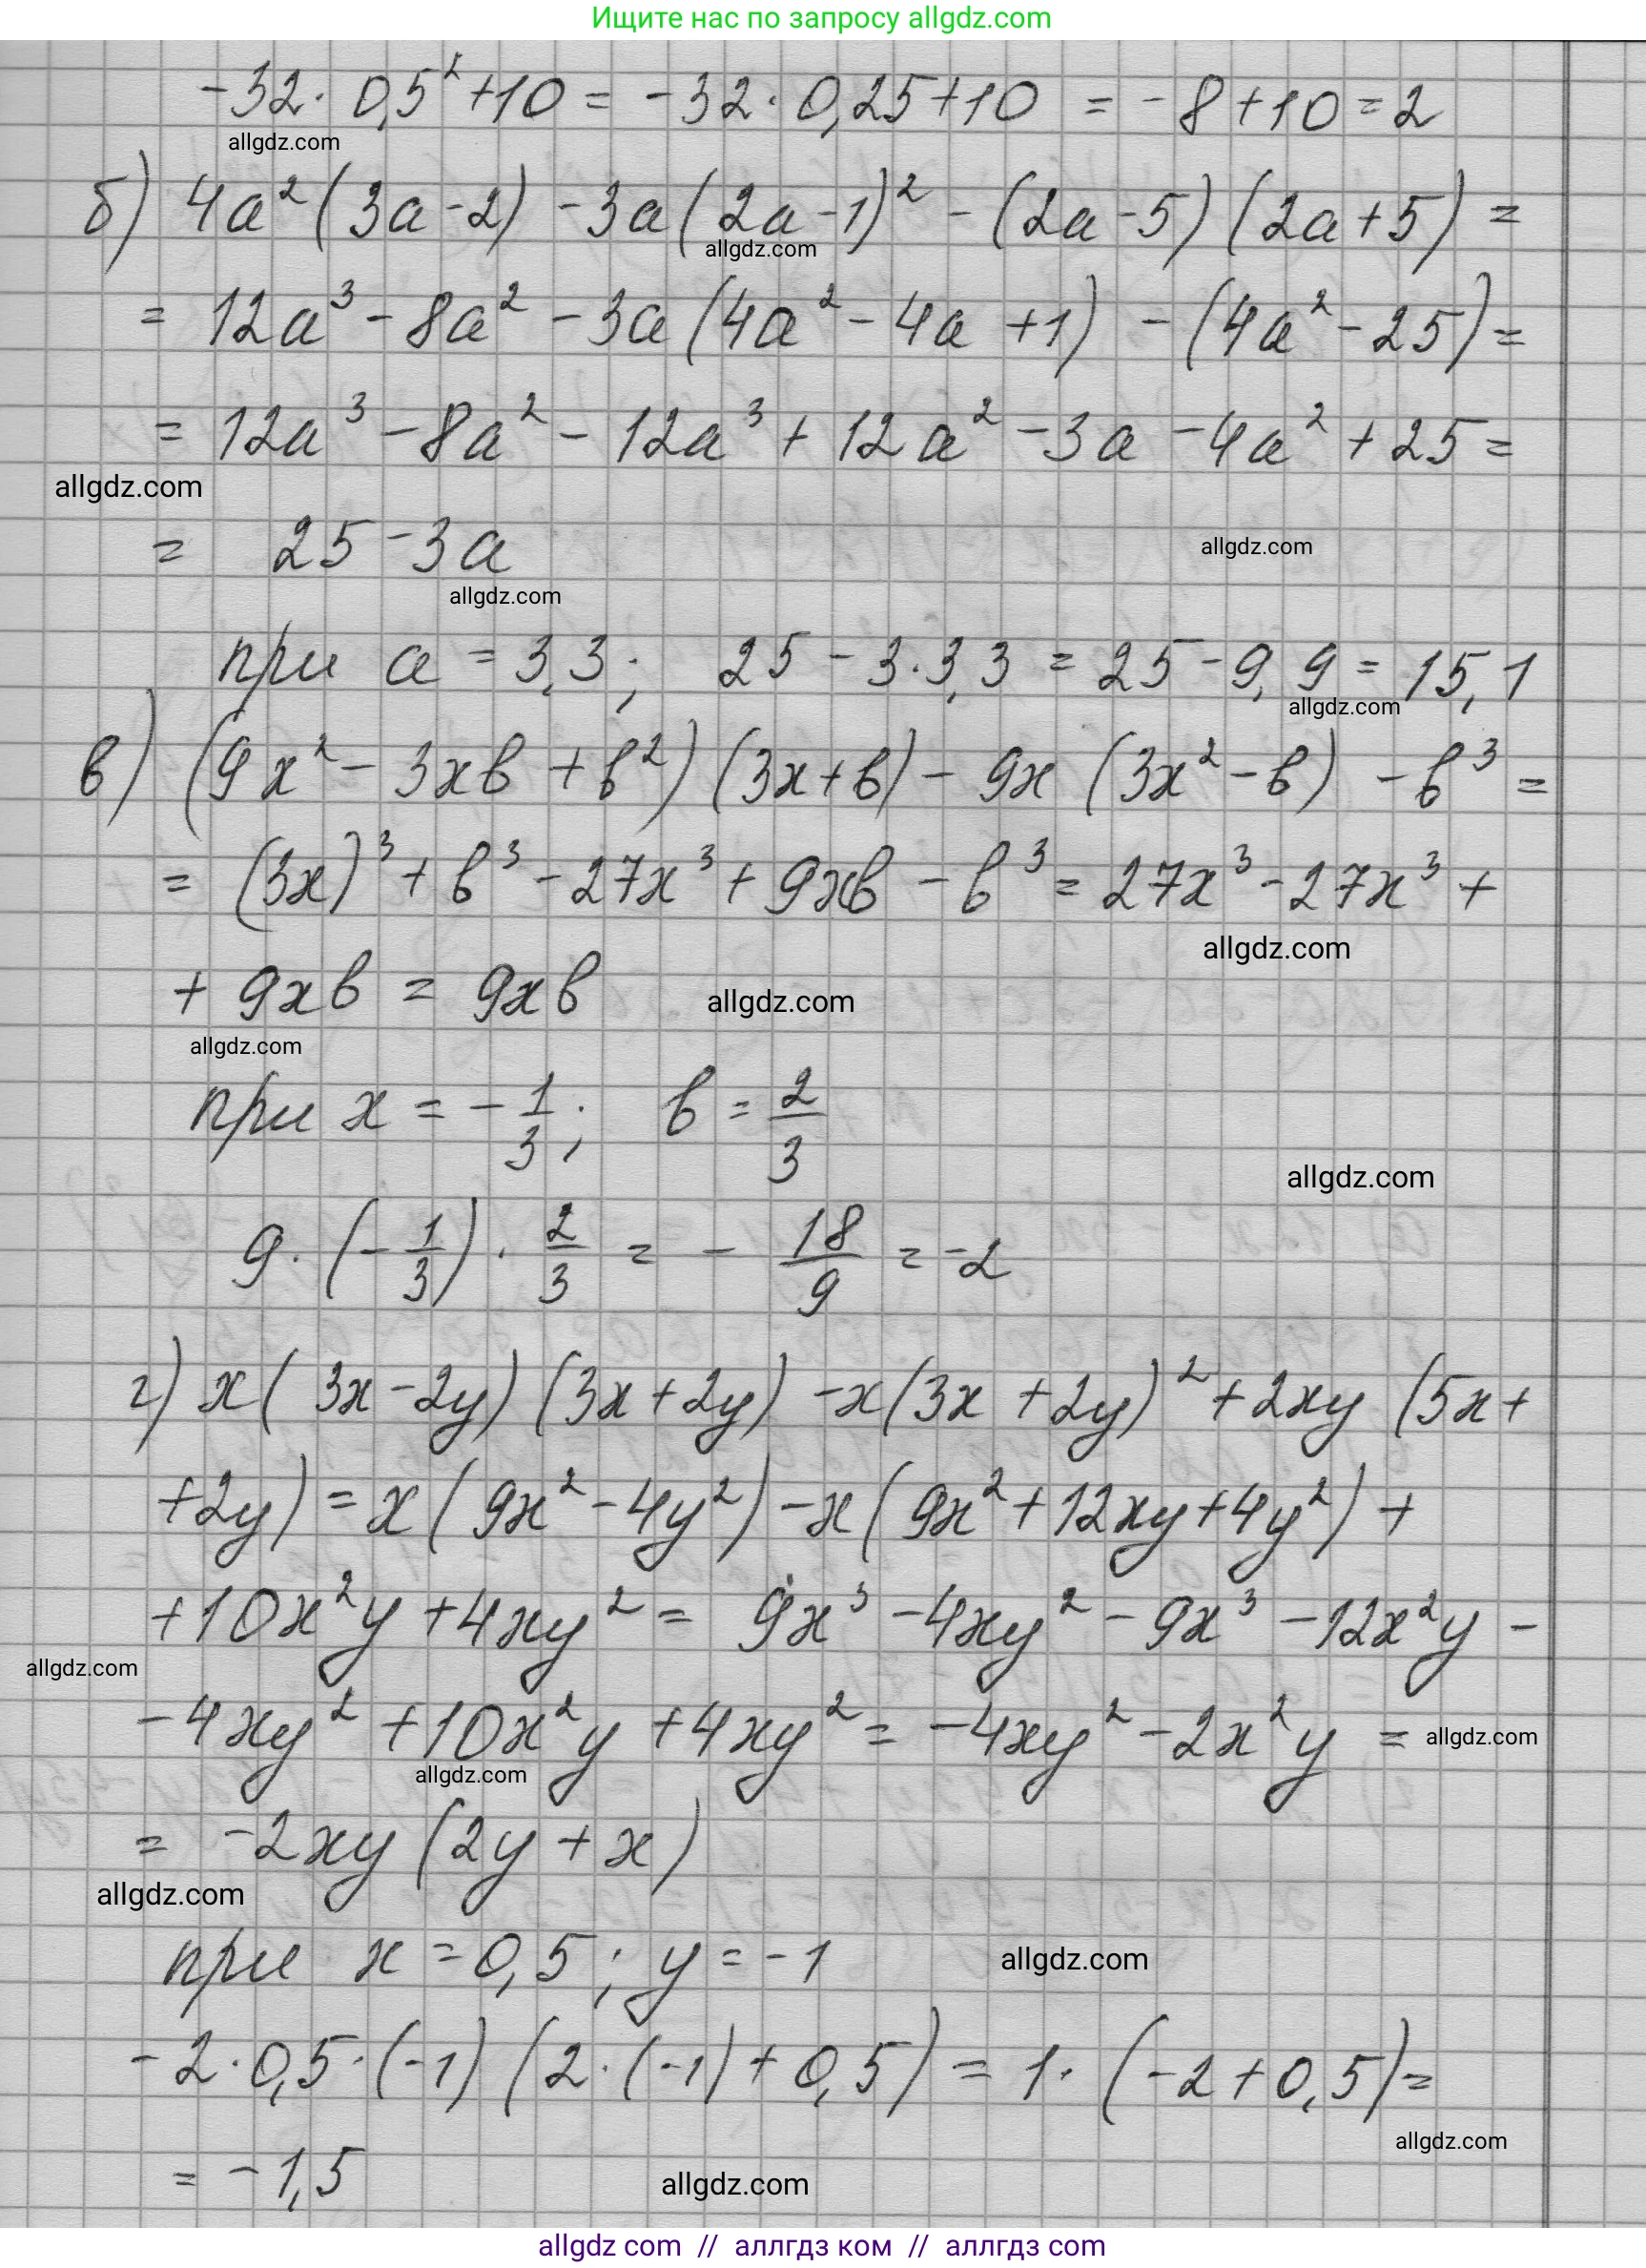 Ищите нас по запросу allgdz.com
-32 · 0,5² + 10 = -32 · 0,25 + 10 = -8 + 10 = 2
allgdz.com
б) 4a² (3a - 2) - 3a (2a - 1)² - (2a - 5) (2a + 5) =
allgdz.com
= 12a³ - 8a² - 3a (4a² - 4a + 1) - (4a² - 25) =
= 12a³ - 8a² - 12a³ + 12a² - 3a - 4a² + 25 =
allgdz.com
= 25 - 3a
allgdz.com
allgdz.com
при a = 3,3; 25 - 3 · 3,3 = 25 - 9,9 = 15,1
allgdz.com
в) (9x² - 3xb + b²) (3x + b) - 9x (3x² - b) - b³ =
= (3x)³ + b³ - 27x³ + 9xb - b³ = 27x³ - 27x³ +
allgdz.com
+ 9xb = 9xb
allgdz.com
allgdz.com
при x = -1/3; b = 2/3
allgdz.com
9 · (-1/3) · 2/3 = - 18/9 = -2
г) x (3x - 2y) (3x + 2y) - x (3x + 2y)² + 2xy (5x +
+ 2y) = x (9x² - 4y²) - x (9x² + 12xy + 4y²) +
+ 10x²y + 4xy² = 9x³ - 4xy² - 9x³ - 12x²y -
allgdz.com
- 4xy² + 10x²y + 4xy² = -4xy² - 2x²y =
allgdz.com
allgdz.com
= -2xy (2y + x)
allgdz.com
при x = 0,5; y = -1
allgdz.com
-2 · 0,5 · (-1) (2 · (-1) + 0,5) = 1 · (-2 + 0,5) =
allgdz.com
= -1,5
allgdz.com
allgdz com // аллгдз ком // аллгдз com